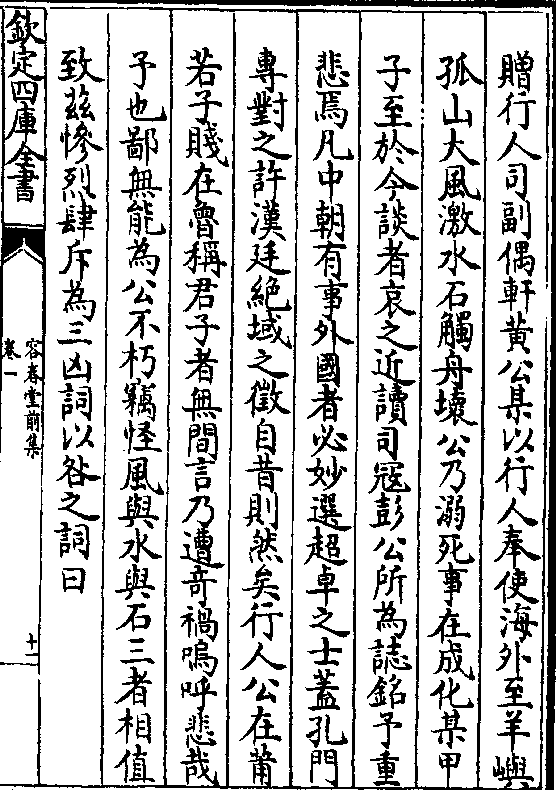 贈行人司副偶軒黄公某以行人奉使海外至羊嶼
孤山大風激水石觸舟壊公乃溺死事在成化某甲
子至於今談者哀之近讀司冦彭公所為誌銘予重
悲焉凡中朝有事外國者必妙選超卓之士蓋孔門
專對之許漢廷絶域之徴自昔則然矣行人公在莆
若子賤在魯稱君子者無間言乃遭竒禍嗚呼悲哉
予也鄙無能為公不朽竊怪風與水與石三者相值
致兹慘烈肆斥為三凶詞以咎之詞曰
欽定四庫全書
容春堂前集
卷一
十一